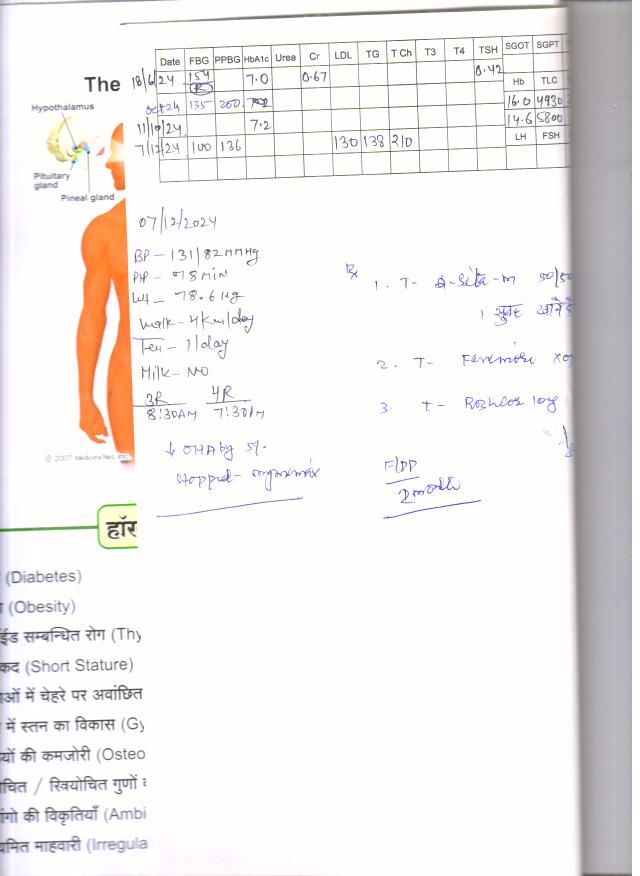 The
Hypothalamus
Pituitary
gland
Pineal gland
© 2007 MedicineNet, Inc.
Date FBG PPBG HbA1c Urea Cr LDL TG T Ch T3 T4 TSH SGOT SGPT
18/6/24 154 7.0 0.67 0.42
R
Hb TLC
oct 24 135 200 16.0 4430
11/10/24 7.2 14.6 5800
LH FSH
7/12/24 100 136 130 138 210
07/12/2024
BP - 131/82 MMHg
78 MIN
Wt - 78.6 Kg
Walk - 4 Km/day
Tea - 1/day
Milk - NO
3R 4R
8:30AM 7:30PM
↓ OHA by 5/.
stopped -
Rx
1. T- Sita-m 50/50
1 सुबह खाने
2. T-
3. T- 10mg
F/PP
2 month
हॉर
(Diabetes)
(Obesity)
ईड सम्बन्धित रोग (Thy
कद (Short Stature)
ओं में चेहरे पर अवांछित
में स्तन का विकास (Gy
यों की कमजोरी (Osteo
चित / स्त्रियोचित गुणों
ंगो की विकृतियाँ (Ambi
यमित माहवारी (Irregula